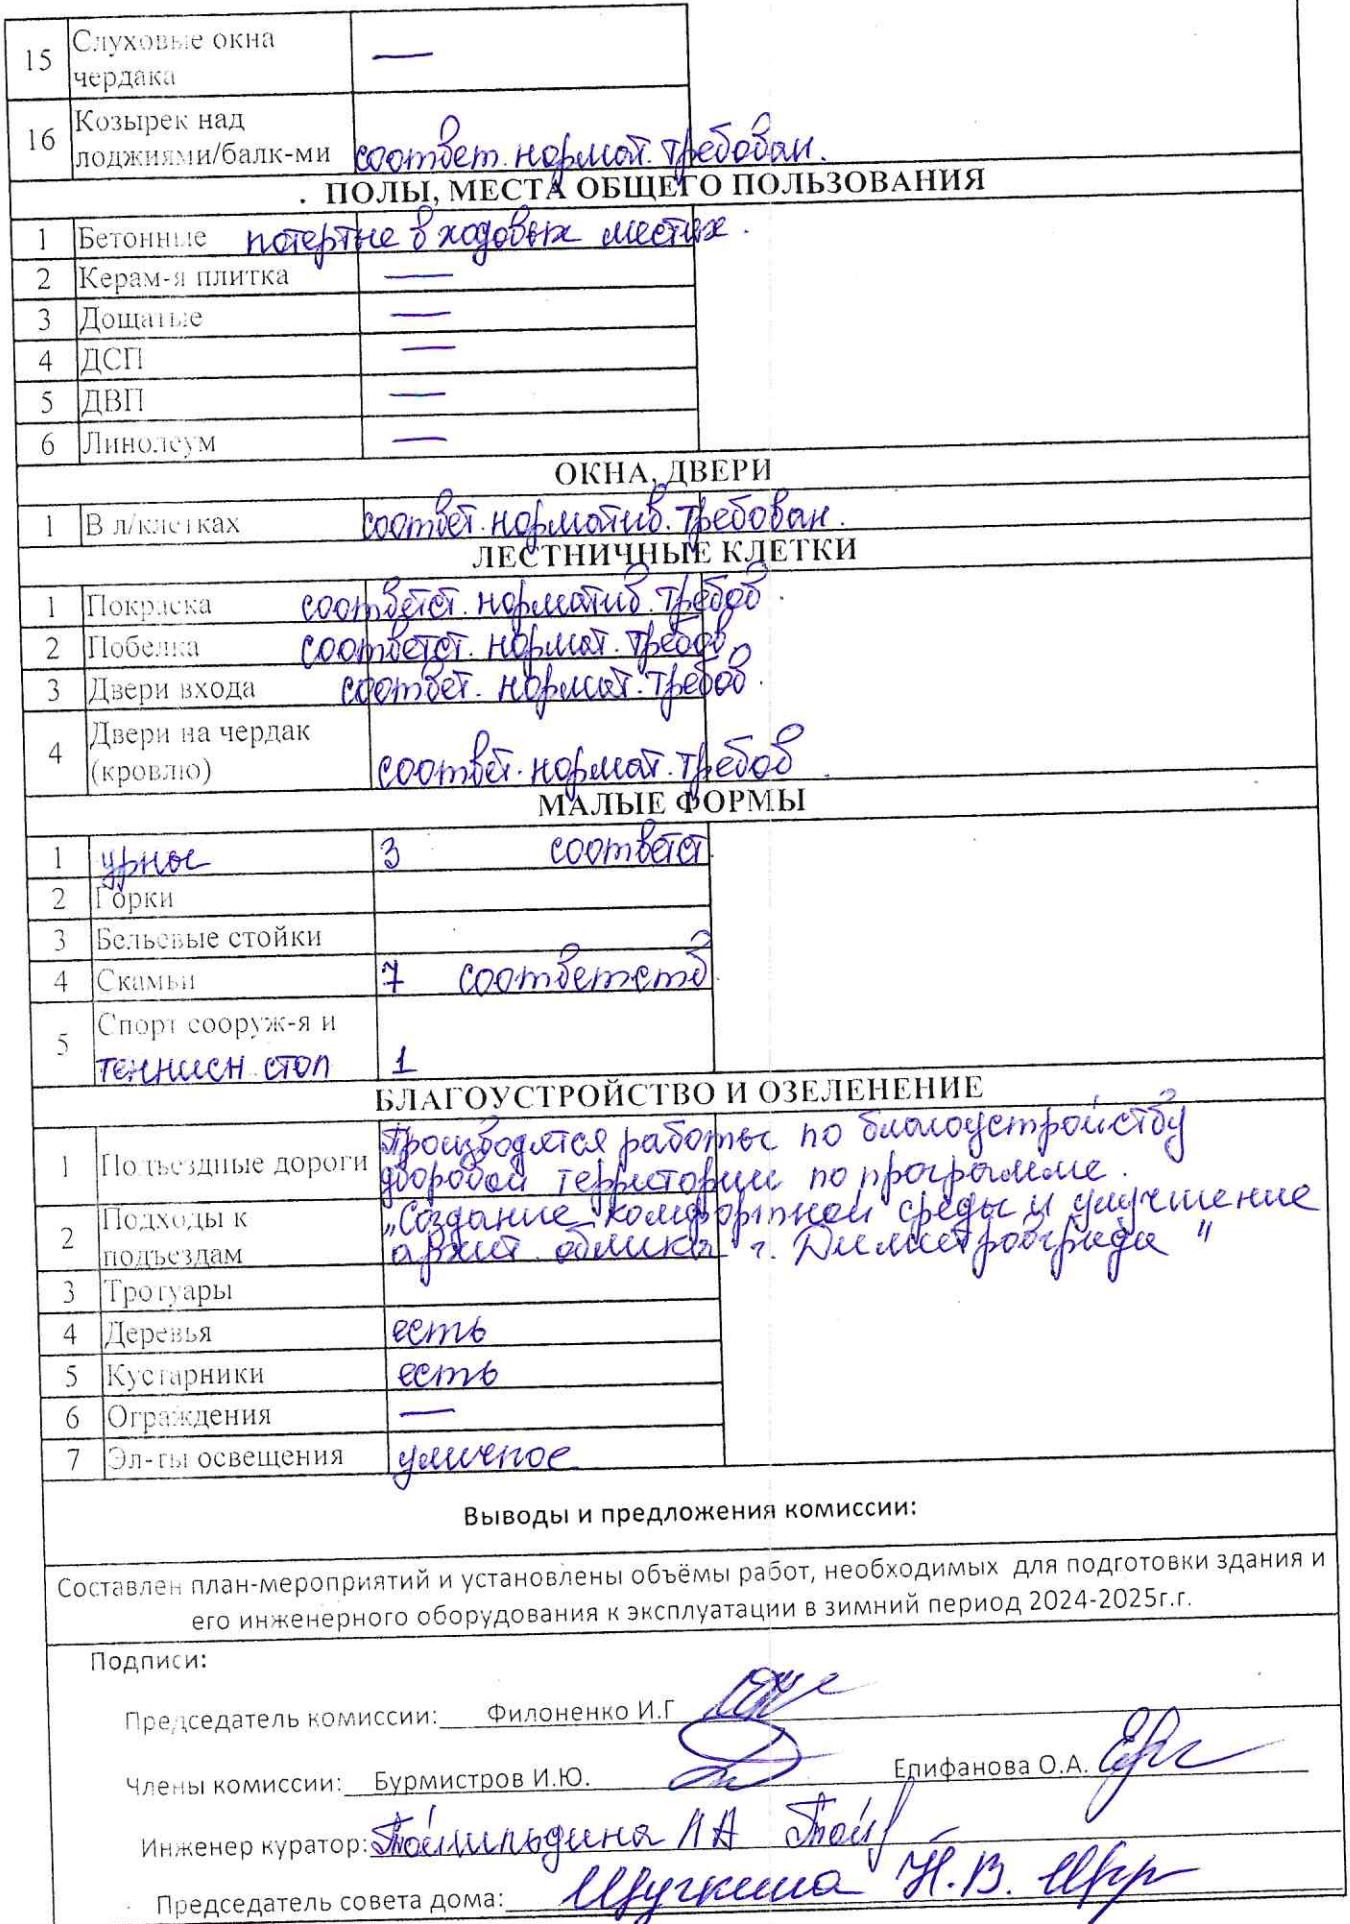 15 Слуховые окна
чердака —
16 Козырек над
лоджиями/балк-ми соответ. нормат. требован.
. ПОЛЫ, МЕСТА ОБЩЕГО ПОЛЬЗОВАНИЯ
1 Бетонные потертые в ходовых местах.
2 Керам-я плитка —
3 Дощатые —
4 ДСП —
5 ДВП —
6 Линолеум —
ОКНА, ДВЕРИ
1 В л/клетках соответ. норматив. требован.
ЛЕСТНИЧНЫЕ КЛЕТКИ
1 Покраска соответст. норматив. требов.
2 Побелка соответст. нормат. требов.
3 Двери входа соответ. нормат. требов.
4 Двери на чердак
(кровлю) соответ. нормат. требов.
МАЛЫЕ ФОРМЫ
1 урны 3 соответст
2 Горки
3 Бельевые стойки
4 Скамьи 7 соответств
5 Спорт сооруж-я и
теннисн. стол 1
БЛАГОУСТРОЙСТВО И ОЗЕЛЕНЕНИЕ
Производятся работы по благоустройству
1 Подъездные дороги дворовой территории по программе.
2 Подходы к „Создание комфортной среды и улучшение
подъездам архит. облика г. Димитровграда"
3 Тротуары
4 Деревья есть
5 Кустарники есть
6 Ограждения —
7 Эл-ты освещения уличное
Выводы и предложения комиссии:
Составлен план-мероприятий и установлены объёмы работ, необходимых для подготовки здания и
его инженерного оборудования к эксплуатации в зимний период 2024-2025г.г.
Подписи:
Председатель комиссии: Филоненко И.Г
Члены комиссии: Бурмистров И.Ю. Епифанова О.А.
Инженер куратор:
Председатель совета дома: Н.В.